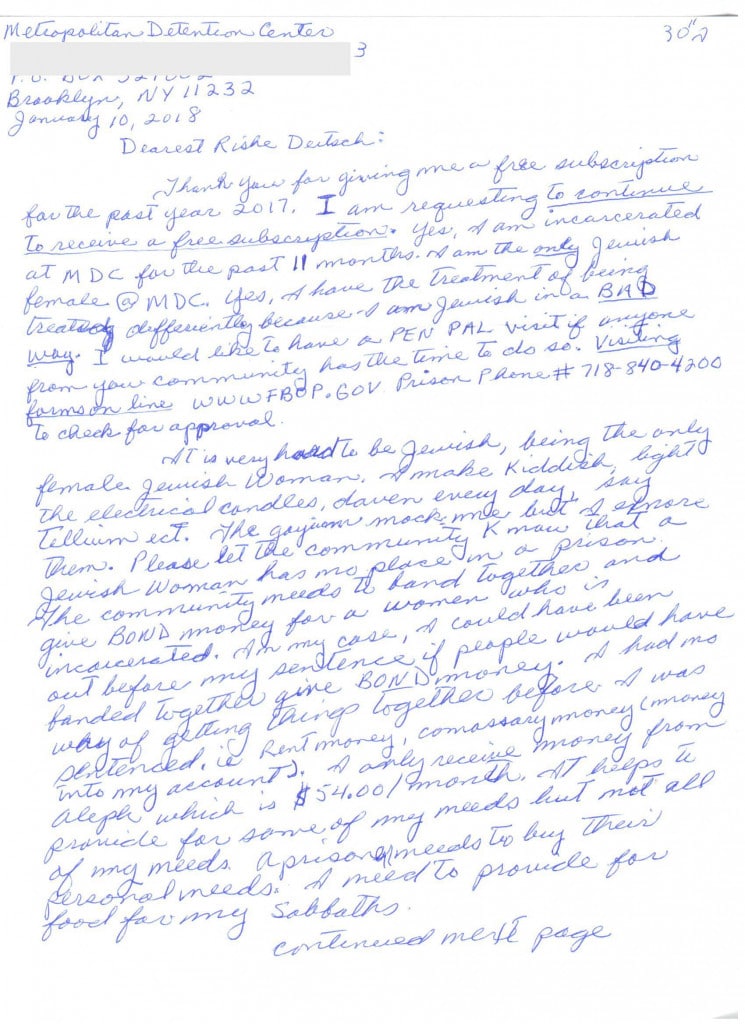 Metropolitan Detention Center
30"ב
3
Brooklyn, NY 11232
January 10, 2018
Dearest Rishe Deitsch:
Thank you for giving me a free subscription
for the past year 2017. I am requesting to continue
to receive a free subscription. Yes, I am incarcerated
at MDC for the past 11 months. I am the only Jewish
female @ MDC. Yes, I have the treatment of being
treated differently because I am Jewish in a BAD
way. I would like to have a PEN PAL visit if anyone
from your community has the time to do so. Visiting
forms on line WWWFBOP.GOV Prison Phone # 718-840-4200
to check for approval.
It is very hard to be Jewish, being the only
female Jewish Woman. I make Kiddish, light
the electrical candles, daven every day, say
Tellium ect. The goyium mock me but I ignore
them. Please let the community know that a
Jewish Woman has no place in a prison.
The community needs to band together and
give BOND money for a women who is
incarcerated. In my case, I could have been
out before my sentence if people would have
banded together give BOND money. I had no
way of getting things together before I was
sentenced. ie Rent money, comossary money (money
into my account). I only receive money from
Aleph which is $54.00/month. It helps to
provide for some of my needs but not all
of my needs. A prisoner needs to buy their
personal needs. I need to provide for
food for my Sabbaths.
continued next page